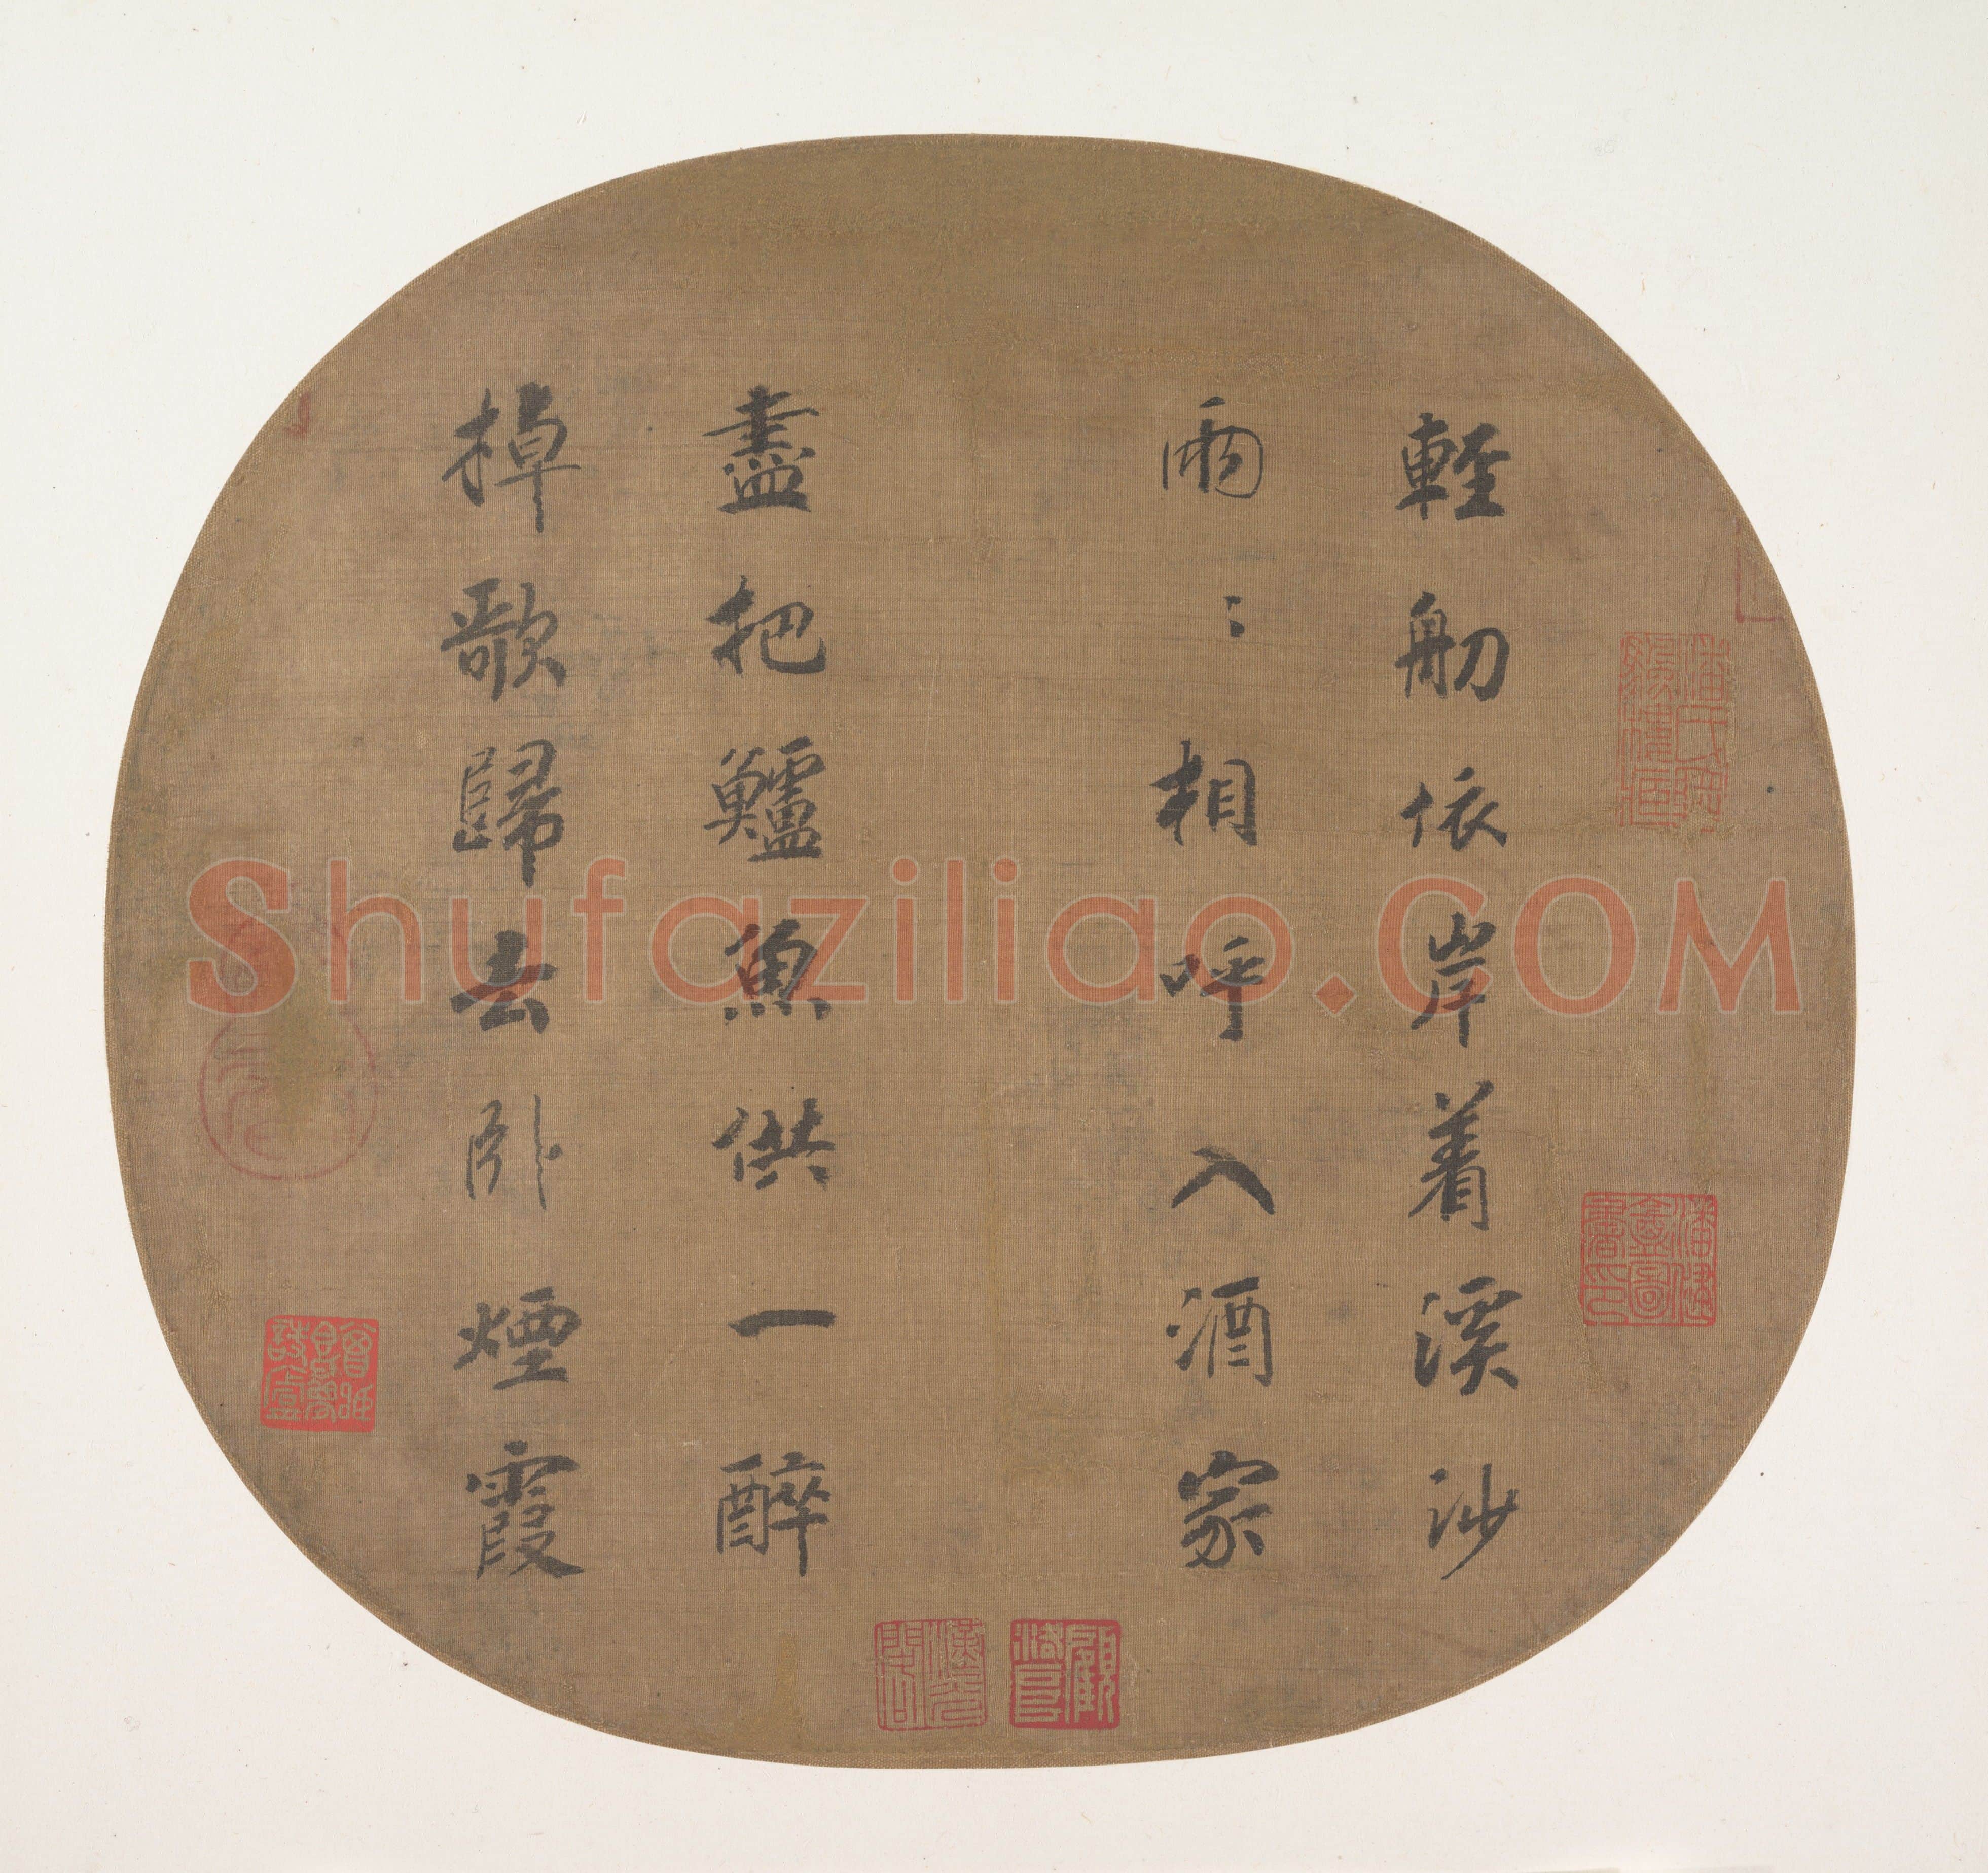 輕舠依岸着溪沙
兩〻相呼入酒家
盡把鱸魚供一醉
棹歌歸去卧煙霞
Shufaziliao.COM